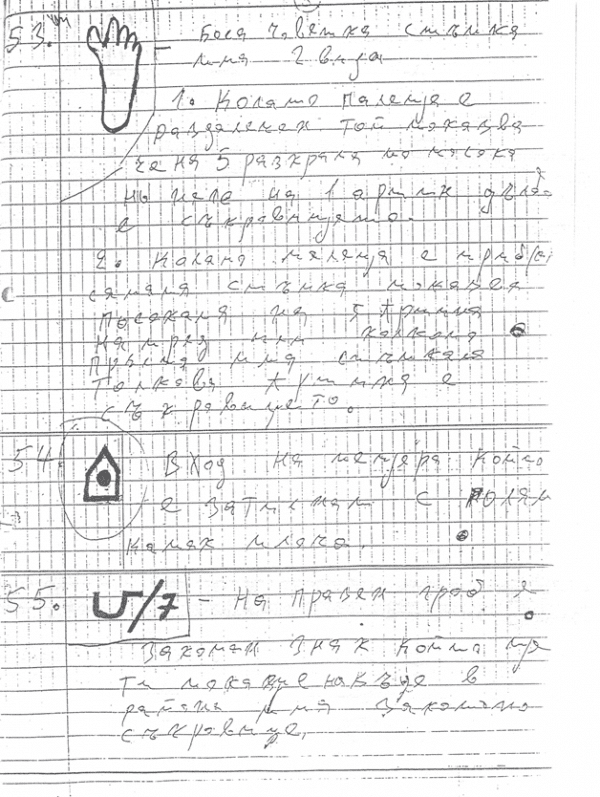 53. – Боса човешка стъпка
има 2 вида
1. Когато палеца е
раздалечен той показва
че на 5 разкрача по посока
на 1 аршин дълбо
е съкровището.
2. Когато палеца е прибран
самата стъпка показва
посоката на 5 аршина
напред или колкото
пръста има стъпката
толкова аршина е
съкровището.
54. Вход на пещера който
е затиснат с голям
камак плоча.
55. /7 – На правен гроб е
закопан знак който ще
ти покаже накъде в
района има закопано
съкровище.